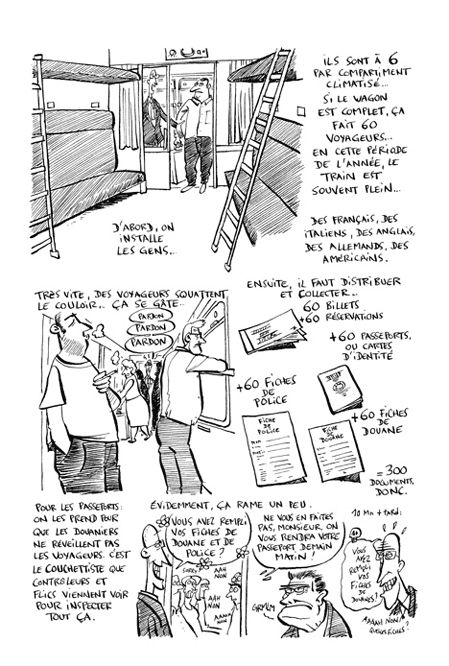 ILS SONT À 6
PAR COMPARTIMENT
CLIMATISÉ...
SI LE WAGON
EST COMPLET, ÇA
FAIT 60
VOYAGEURS...
EN CETTE PÉRIODE
DE L'ANNÉE, LE
TRAIN EST
SOUVENT PLEIN...
DES FRANÇAIS, DES
ITALIENS, DES ANGLAIS,
DES ALLEMANDS, DES
AMÉRICAINS.
D'ABORD, ON
INSTALLE
LES GENS...
TRÈS VITE, DES VOYAGEURS SQUATTENT
LE COULOIR... ÇA SE GÂTE...
PARDON
PARDON
PARDON
ENSUITE, IL FAUT DISTRIBUER
ET COLLECTER...
60 BILLETS
+60 RÉSERVATIONS
+60 PASSEPORTS,
OU CARTES
D'IDENTITÉ
+60 FICHES
DE
POLICE
FICHE
DE
POLICE
+60 FICHES
DE
DOUANE
FICHE
DE
DOUANE
= 300
DOCUMENTS,
DONC.
POUR LES PASSEPORTS:
ON LES PREND POUR
QUE LES DOUANIERS
NE RÉVEILLENT PAS
LES VOYAGEURS. C'EST
LE COUCHETTISTE QUE
CONTRÔLEURS ET
FLICS VIENNENT VOIR
POUR INSPECTER
TOUT ÇA.
ÉVIDEMMENT, ÇA RAME UN PEU:
VOUS AVEZ REMPLI
VOS FICHES DE
DOUANE ET DE
POLICE?
SORRY
AAH
NON
AAH
NON
AAAH
NON
NE VOUS EN FAITES
PAS, MONSIEUR. ON
VOUS RENDRA VOTRE
PASSEPORT DEMAIN
MATIN!
GRMLM
10 MN + TARD:
VOUS
AVEZ
REMPLI
VOS
FICHES
DE
DOUANES?
AAAAH NON!
QUELLES FICHES?